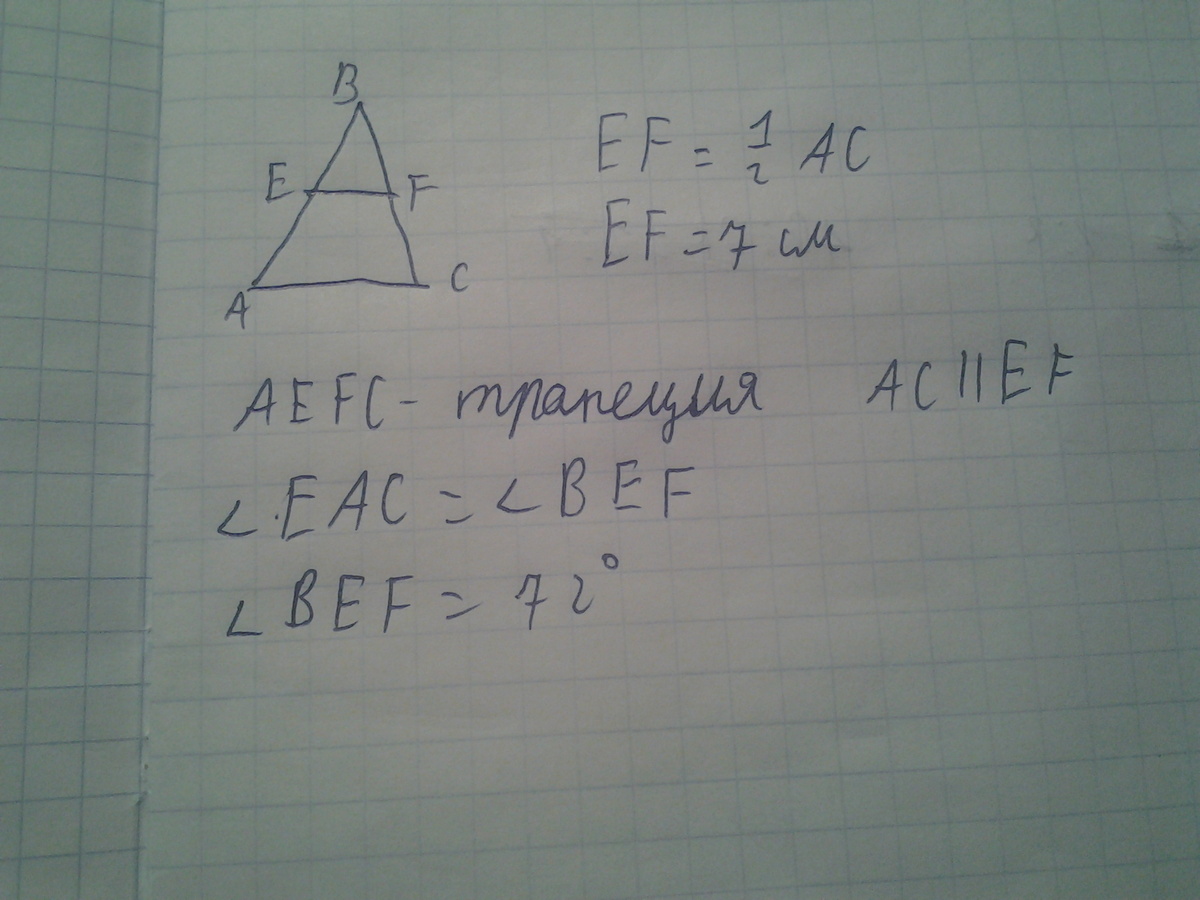 B
E
F
A
C
EF = 1/2 AC
EF = 7 см
AEFC - трапеция AC || EF
∠EAC = ∠BEF
∠BEF = 72°